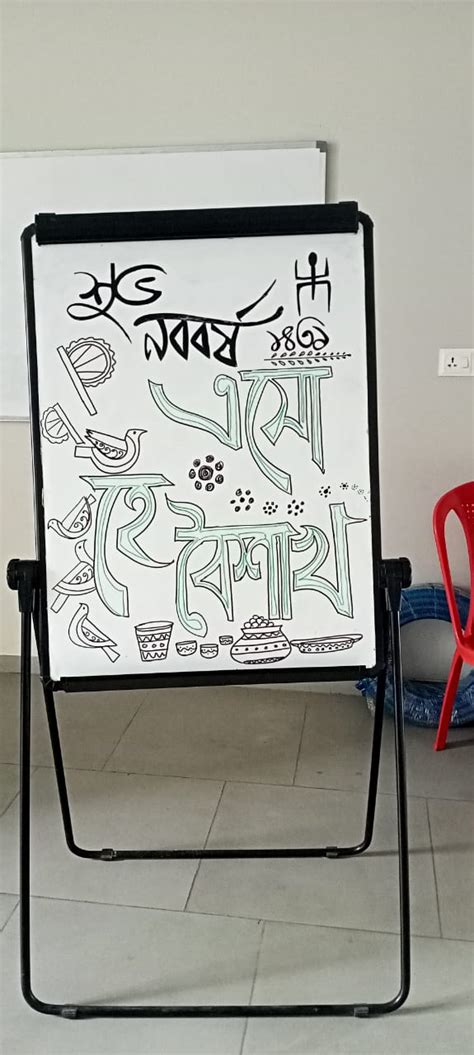 শুভ
নববর্ষ
১৪৩১
এসো
হে
বৈশাখ